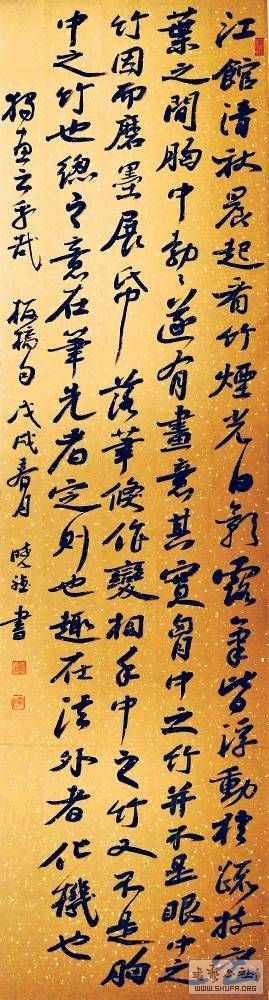 江館清秋晨起看竹煙光日影露氣皆浮動於疏枝密
葉之間胸中勃〻遂有畫意其實胸中之竹并不是眼中之
竹因而磨墨展帋落筆倏作變相手中之竹又不是胸
中之竹也總之意在筆先者定則也趣在法外者化機也
獨畫云乎哉 板橋句 戊戌春月 曉 書
WWW.SHUFA.ORG